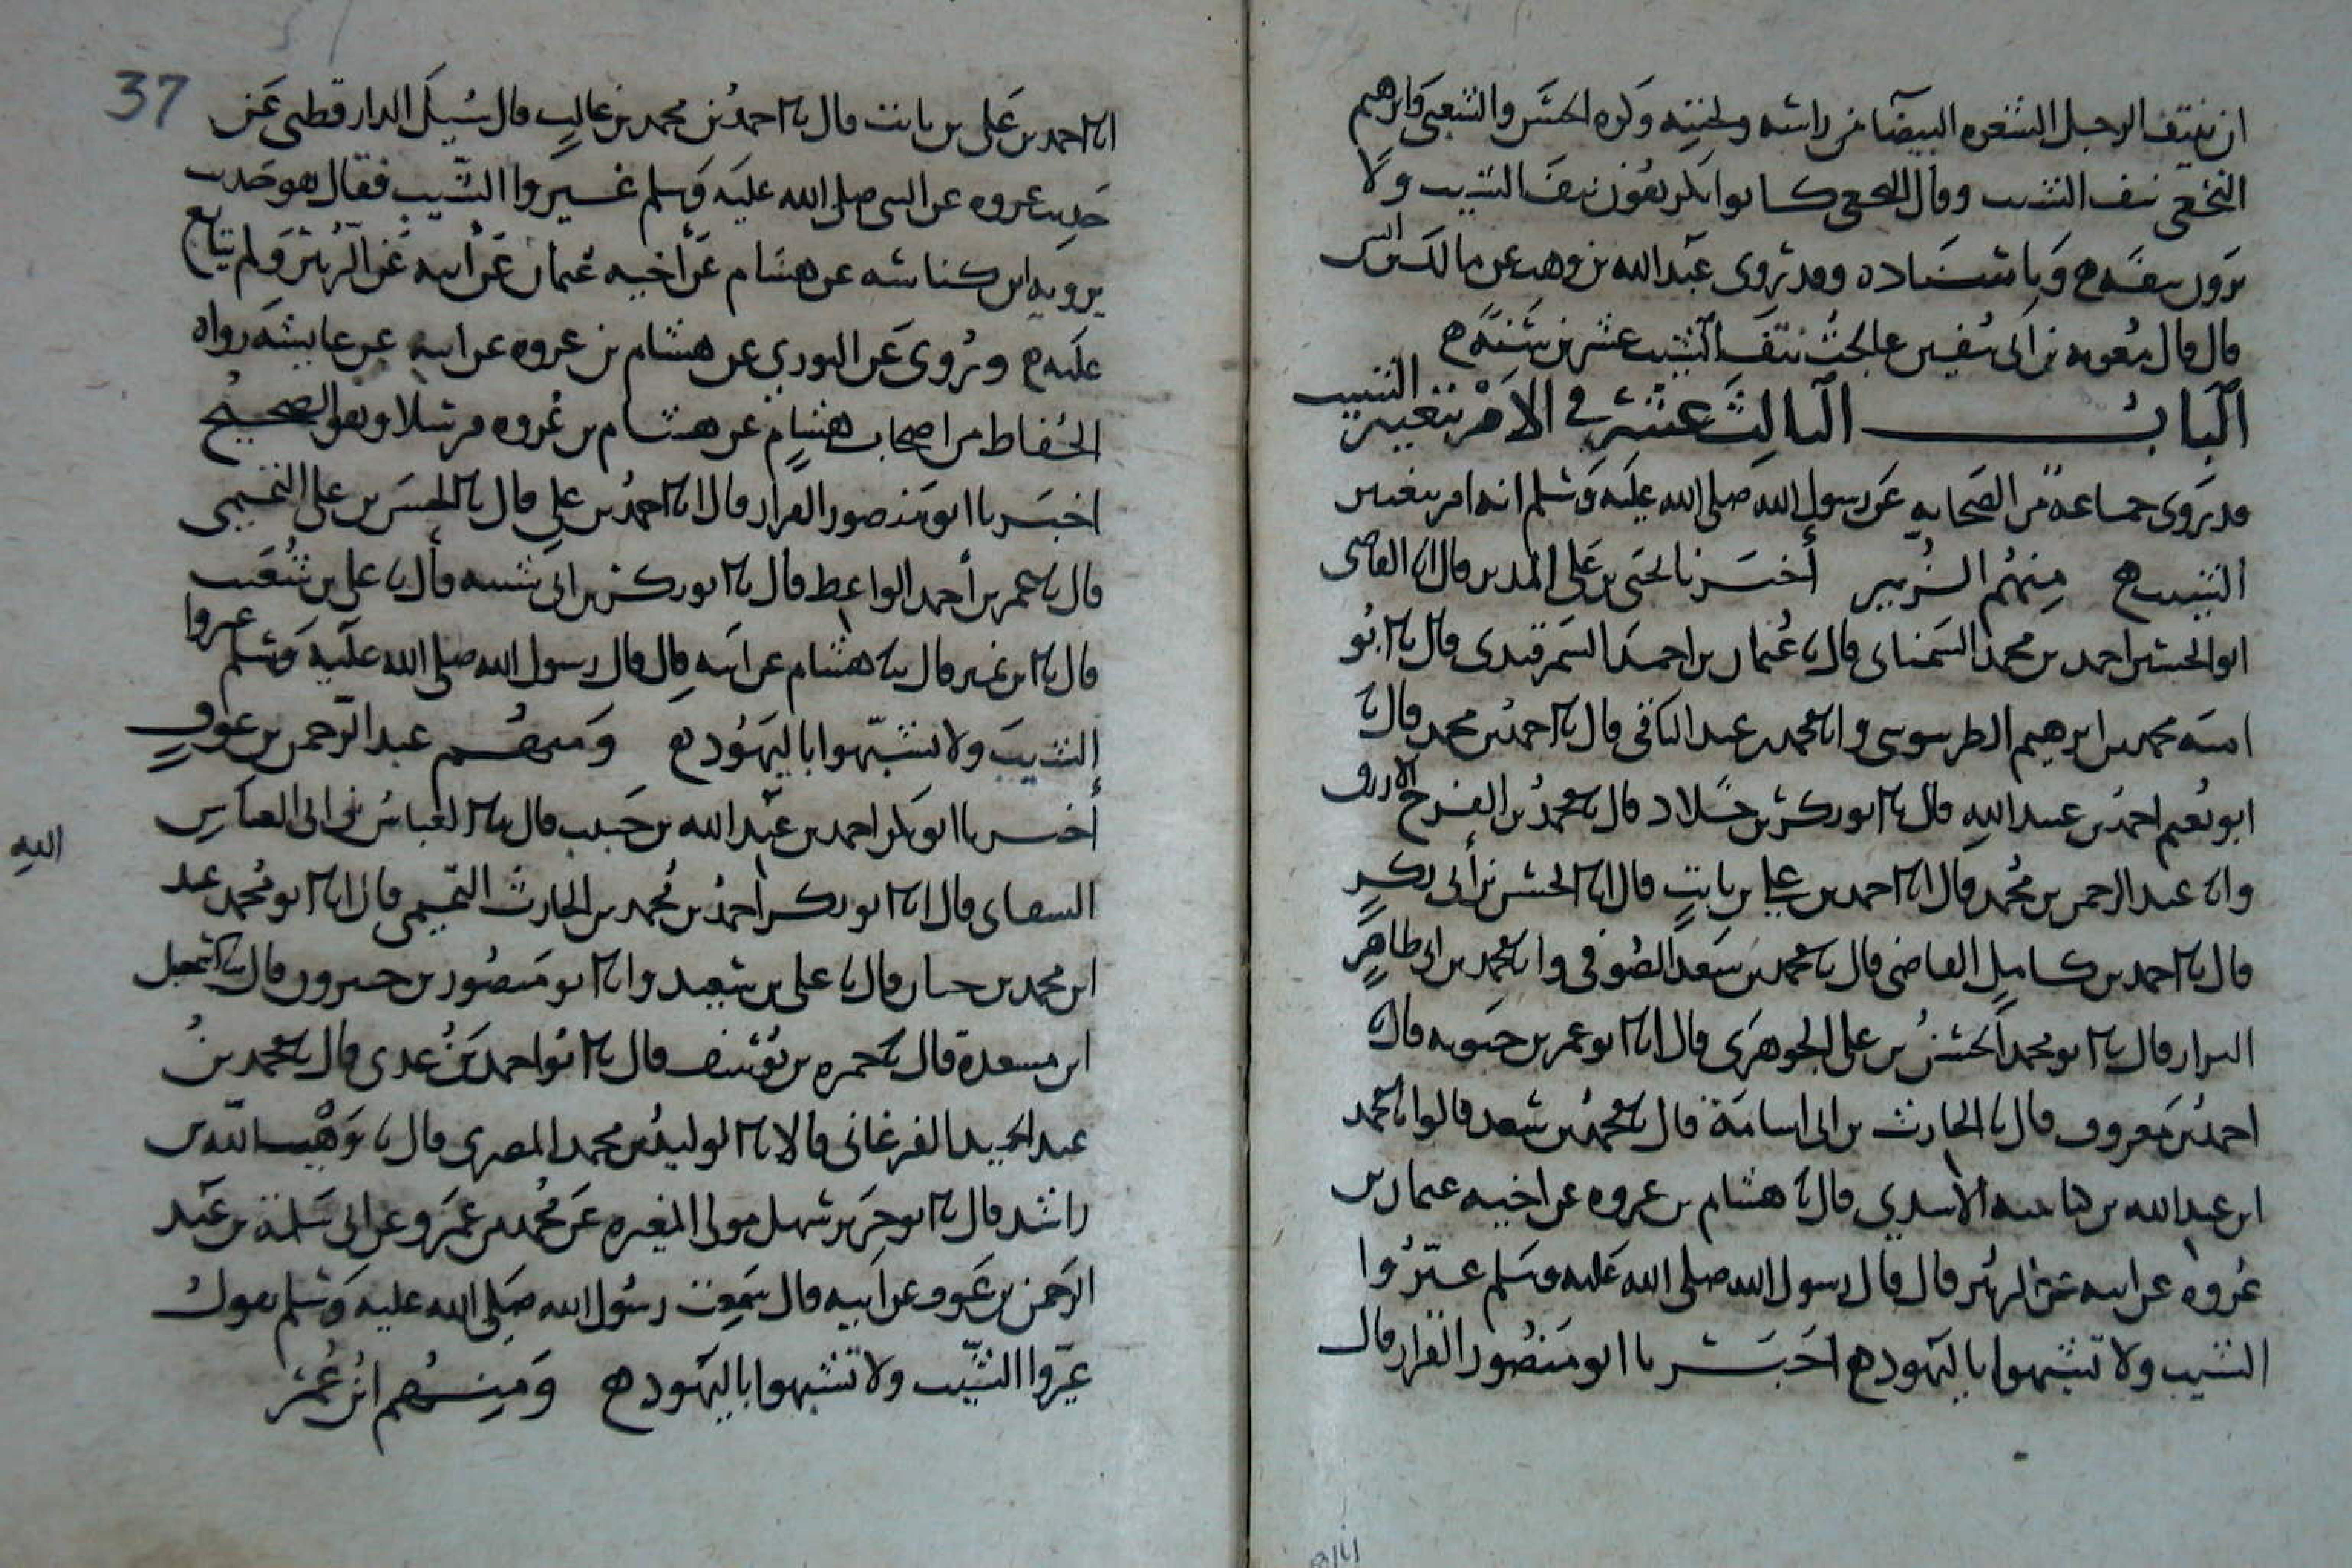 ان ينتف الرجل الشعره البيضا من راسه ولحيته وكره الحسن والشعبي وابرهيم
النخعي نتف الشيب وقال النخعي كانوا يكرهون نتف الشيب ولا
يرون بقصه وباسناده وقد روى عبد الله بن وهب عن مالك بن انس
قال قال معويه بن ابي سفين عالجت نتف الشيب عشرين سنة
الباب الثالث عشر في الامر بتغيير الشيب
قد روى جماعة من الصحابه عن رسول الله صلى الله عليه وسلم انه امر بتغيير
الشيب منهم الزبير أخبرنا يحيى بن علي المدير قال انا القاضي
ابو الحسين احمد بن محمد السمناني قال نا عثمان بن احمد السمرقندي قال نا ابو
اميه محمد بن ابرهيم الطرسوسي وانا محمد بن عبد الباقي قال نا احمد بن محمد قال نا
ابو نعيم احمد بن عبد الله قال نا ابو بكر بن خلاد قال نا محمد بن الفرج الازرق
وانا عبد الرحمن بن محمد قال انا احمد بن علي بن ثابت قال انا الحسن بن أبي بكر
قال نا احمد بن كامل القاضي قال نا محمد بن سعد العوفي وانا محمد بن ابي طاهر
البزار قال نا ابو محمد الحسن بن علي الجوهري قال انا ابو عمر بن حيويه قال نا
احمد بن معروف قال نا الحارث بن ابي اسامة قال نا محمد بن سعد قالوا نا محمد
ابن عبد الله بن كناسه الاسدي قال نا هشام بن عروه عن اخيه عثمان بن
عروه عن ابيه عن الزبير قال قال رسول الله صلى الله عليه وسلم غيّروا
الشيب ولا تشبهوا باليهود اخبرنا ابو منصور القزاز قال
37
انا احمد بن علي بن ثابت قال نا احمد بن محمد بن غالب قال سُيل الدارقطني عن
حديث عروه عن النبي صلى الله عليه وسلم غيروا الشيب فقال هو حديث
يرويه ابن كناسه عن هشام عن أخيه عثمان عن أبيه عن الزبير ولم يتابع
عليه ويُروى عن الثوري عن هشام بن عروه عن ابيه عن عايشه رواه
الحُفاظ من اصحاب هشام عن هشام بن عُروه مرسلا وهو الصحيح
اخبرنا ابو منصور القزاز قال انا احمد بن علي قال نا الحسن بن علي التميمي
قال نا عمر بن أحمد الواعظ قال نا ابو بكر بن ابي شيبه قال نا علي بن شعيب
قال نا ابن نمير قال نا هشام عن ابيه قال قال رسول الله صلى الله عليه وسلم غيروا
الشيب ولا تشبّهوا باليهود ومنهم عبد الرحمن بن عوف
أخبرنا ابو بكر احمد بن عبد الله بن حبيب قال نا العباس بن ابي العباس
السقاني قال انا ابو بكر احمد بن محمد بن الحارث التميمي قال انا ابو محمد عبد
الله
ابن محمد بن حيان قال نا علي بن سعيد وانا ابو منصور بن خيرون قال نا اسمعيل
ابن مسعدة قال نا حمزه بن يوسف قال نا ابو احمد بن عدي قال نا محمد بن
عبد الحميد الفرغاني قالا نا الوليد بن محمد المصري قال نا وهب الله بن
راشد قال نا ابو حريز سهل مولى المغيره عن محمد بن عمرو عن ابي سلمة بن عبد
الرحمن بن عوف عن ابيه قال سمعت رسول الله صلى الله عليه وسلم يقول
غيّروا الشيب ولا تشبهوا باليهود ومنهم ابن عُمر